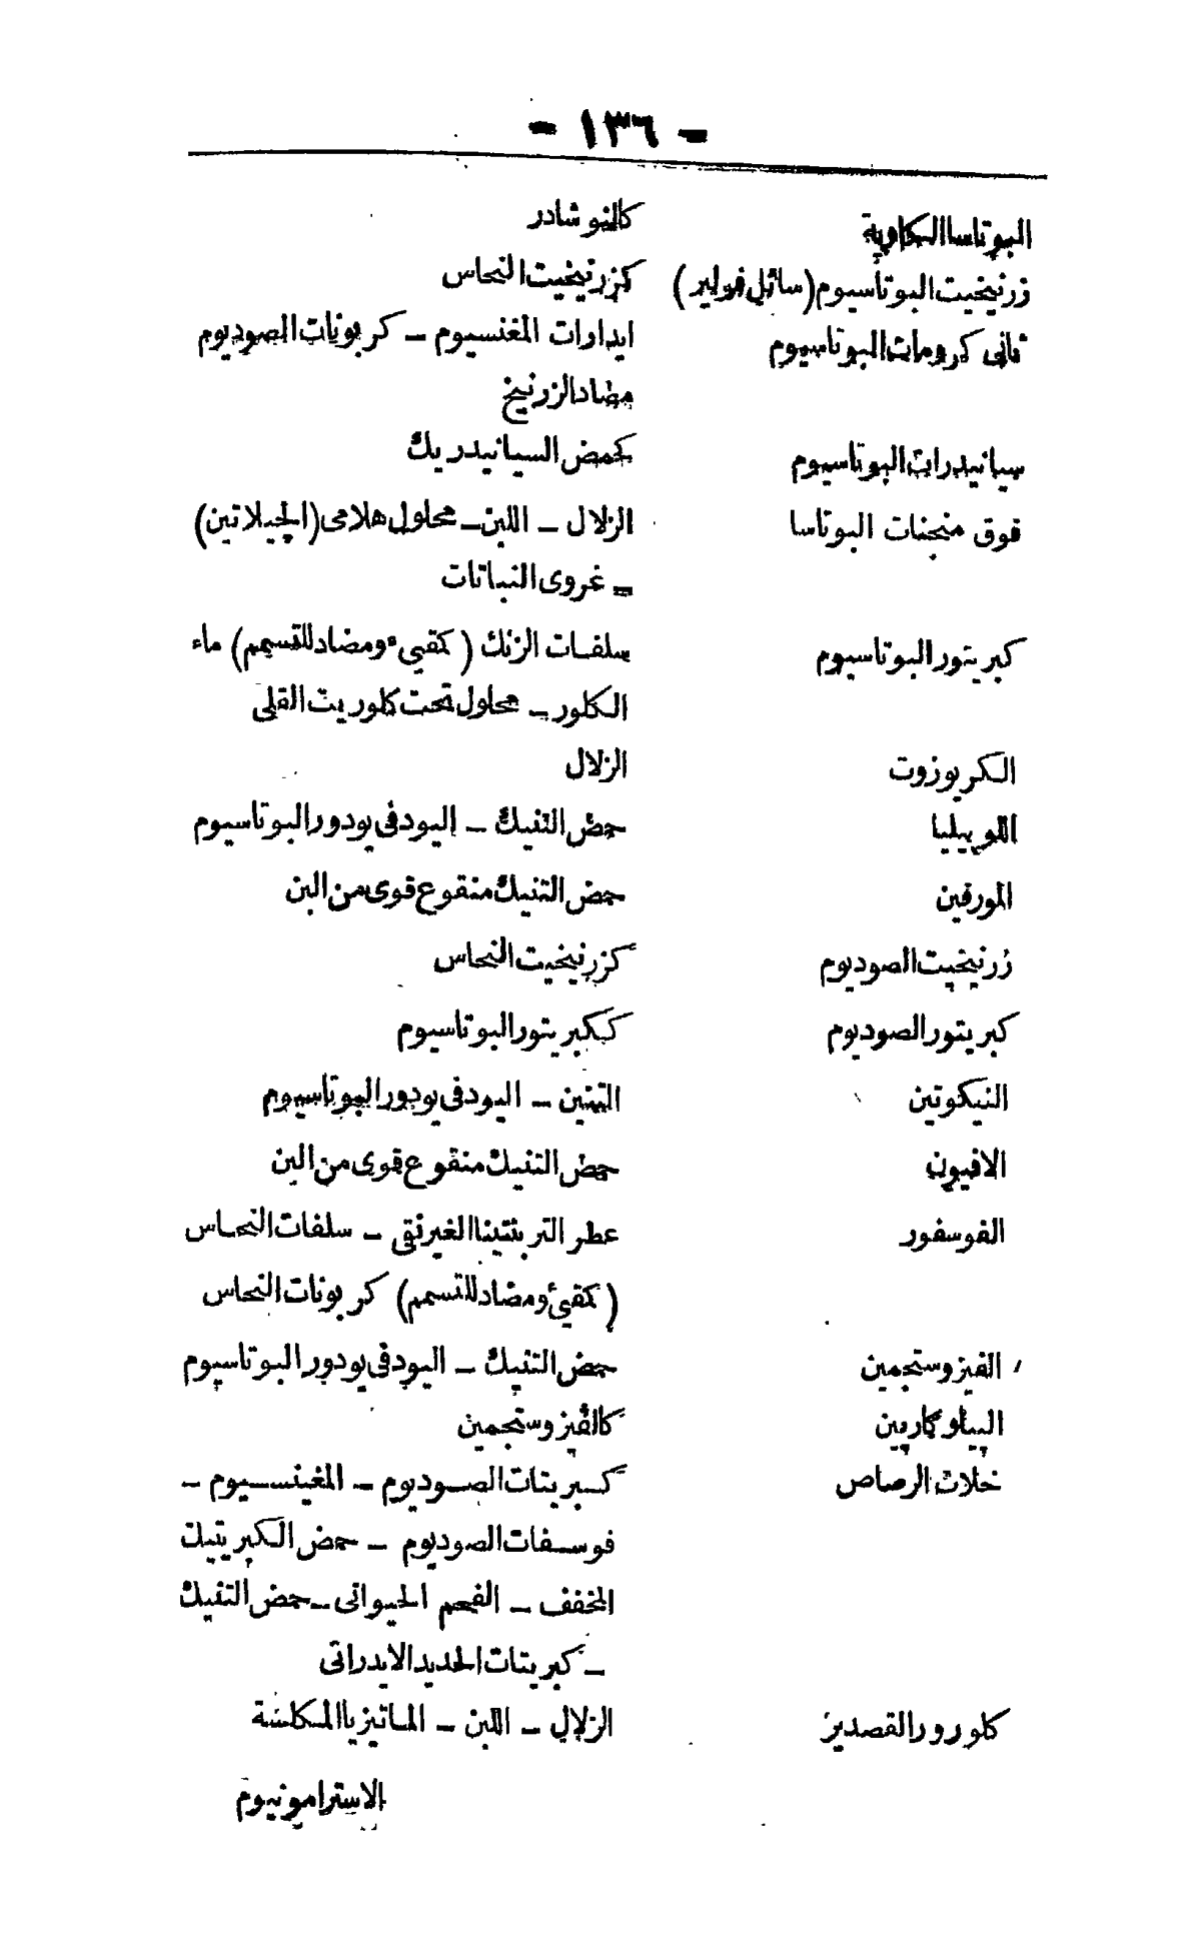 - ١٣٦ -
البوتاسا الكاوية كالنوشادر
زرنيخيت البوتاسيوم (سائل فولير) كزرنيخيت النحاس
ثانى كرومات البوتاسيوم ايدارات المغنسيوم – كربونات الصوديوم
مضاد الزرنيخ
سيانيدرات البوتاسيوم كحمض السيانيدريك
فوق منجنات البوتاسا الزلال – اللبن – محلول هلامى (الجيلاتين)
– غروى النباتات
كبريتور البوتاسيوم سلفات الزنك (كمقيء ومضاد للتسمم) ماء
الكلور – محلول تحت كلوريت القلى
الكريوزوت الزلال
اللوبيليا حمض التنيك – اليود فى يودور البوتاسيوم
المورفين حمض التنيك منقوع قوى من البن
زرنيخيت الصوديوم كزرنيخيت النحاس
كبريتور الصوديوم ككبريتور البوتاسيوم
النيكوتين التنين – اليود فى يودور البوتاسيوم
الافيون حمض التنيك منقوع قوى من البن
الفوسفور عطر التربنتينا الغير نقى – سلفات النحاس
(كمقيئ ومضاد للتسمم) كربونات النحاس
الفيزوستجمين حمض التنيك – اليود فى يودور البوتاسيوم
البيلوكاربين كالفيزوستجمين
خلات الرصاص كبريتات الصوديوم – المغينسيوم –
فوسفات الصوديوم – حمض الكبريتيك
المخفف – الفحم الحيوانى – حمض التنيك
– كبريتات الحديد الايدراتى
كلورور القصدير الزلال – اللبن – المانيزيا المكلسة
الاسترامونيوم